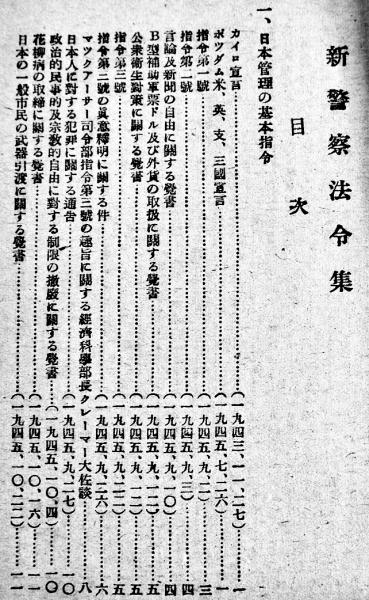 新警察法令集
目次
一、日本管理の基本指令
カイロ宣言……(一九四三、一一、二七)……一
ポツダム米、英、支、三國宣言……(一九四五、七、二六)……一
指令第一號……(一九四五、九、二)……三
指令第二號……(一九四五、九、三)……四
言論及新聞の自由に關する覺書……(一九四五、九、一〇)……四
B型補助軍票ドル及び外貨の取扱に關する覺書……(一九四五、九、一二)……五
公衆衛生對策に關する覺書……(一九四五、九、二二)……五
指令第三號……(一九四五、九、二二)……五
指令第三號の眞意釋明に關する件……(一九四五、九、二六)……六
マツクアーサー司令部指令第三號の趣旨に關する經濟科學部長クレーマー大佐談……八
日本人に對する犯罪に關する通告……(一九四五、九、二七)……一〇
政治的民事的及宗敎的自由に對する制限の撤廢に關する覺書……(一九四五、一〇、四)……一〇
花柳病の取締に關する覺書……(一九四五、一〇、一六)……一一
日本の一般市民の武器引渡に關する覺書……(一九四五、一〇、二二)……一一